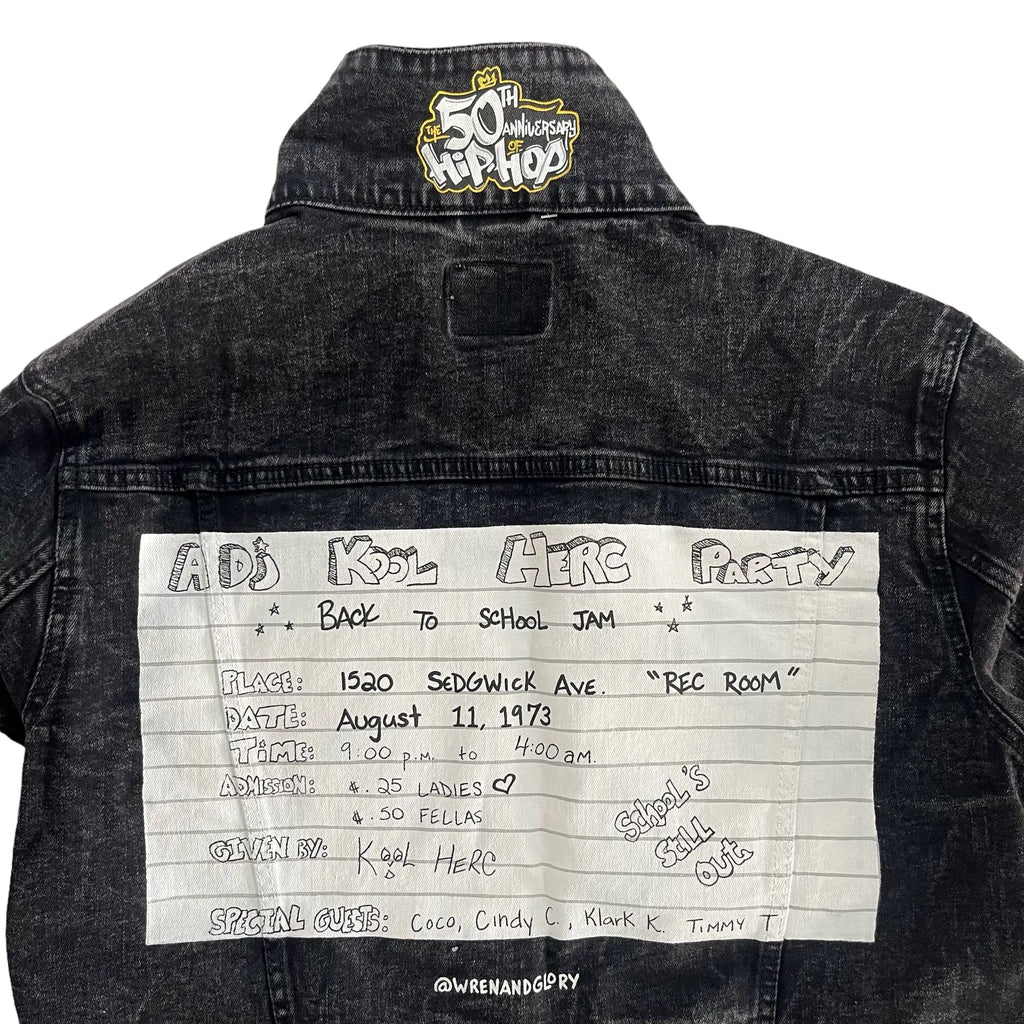 THE 50TH ANNIVERSARY
OF
HIP-HOP
A DJ KOOL HERC PARTY
BACK TO SCHOOL JAM
PLACE: 1520 SEDGWICK AVE. "REC ROOM"
DATE: August 11, 1973
TIME: 9:00 p.m. to 4:00 am.
ADMISSION: $.25 LADIES ♡
$.50 FELLAS
SCHOOL'S
STILL
OUT
GIVEN BY: KOOL HERC
SPECIAL GUESTS: Coco, Cindy C., Klark K. TIMMY T
@WRENANDGLORY